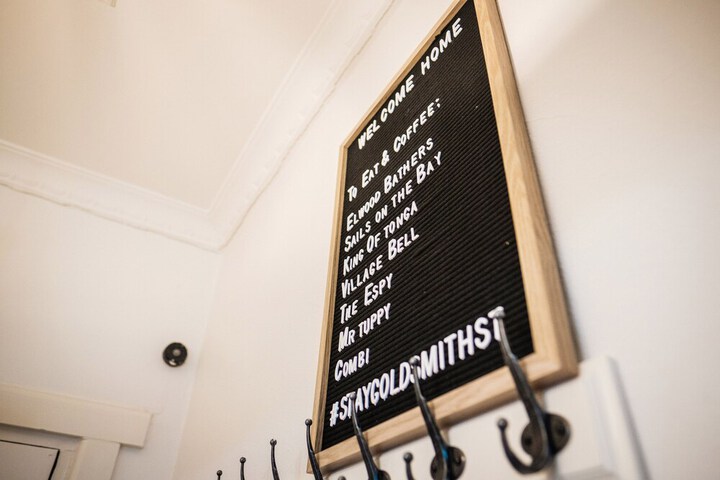 WELCOME HOME
TO EAT & COFFEE:
ELWOOD BATHERS
SAILS ON THE BAY
KING OF TONGA
VILLAGE BELL
THE ESPY
MR TUPPY
COMBI
#STAYGOLDSMITHST